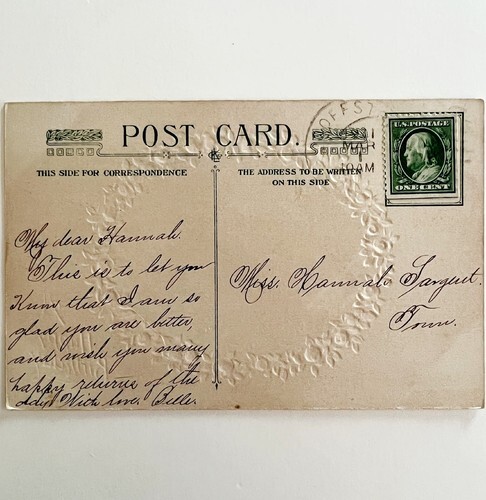 POST CARD.
THIS SIDE FOR CORRESPONDENCE
THE ADDRESS TO BE WRITTEN
ON THIS SIDE
OFFST
MAR
10AM
U.S. POSTAGE
ONE CENT
My dear Hannah.
This is to let you
Know that I am so
glad you are bitter,
and wish you many
happy returns of the
day. With love. Belle.
Miss. Hannah Sargent.
Town.